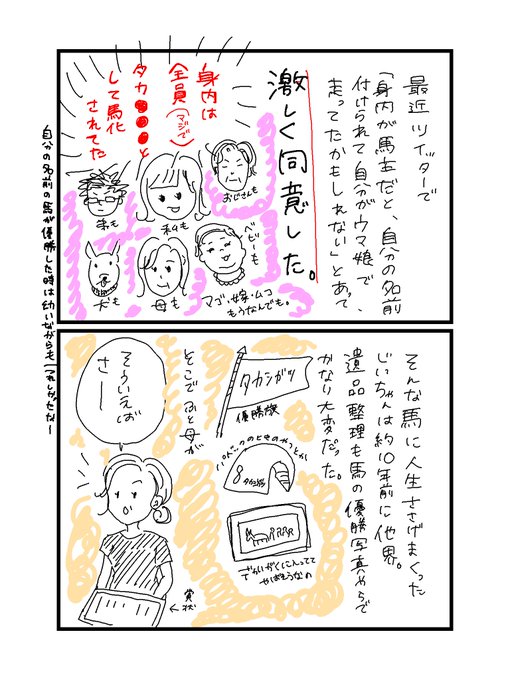 最近ツイッターで
「身内が馬主だと、自分の名前
付けられて自分がウマ娘で
走ってたかもしれない」とあって、
激しく同意した。
身内は
全員(マジで)
タカ●●●●と
して馬化
されてた
おじさんも
私も
弟も
ベビーも
母も
犬も
マゴ・嫁・ムコ
もうなんでも。
自分の名前の馬が優勝した時は幼いながらもうれしかったなー
そんな馬に人生ささげまくった
じいちゃんは約10年前に他界。
遺品整理も馬の優勝写真やらで
かなり大変だった。
タカシガリ
優勝旗
8
でかいがくに入ってて
やばそうなの
そこでふと母が
そういえば
さー
賞状